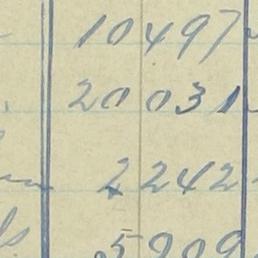 10497
20031
2242
5909